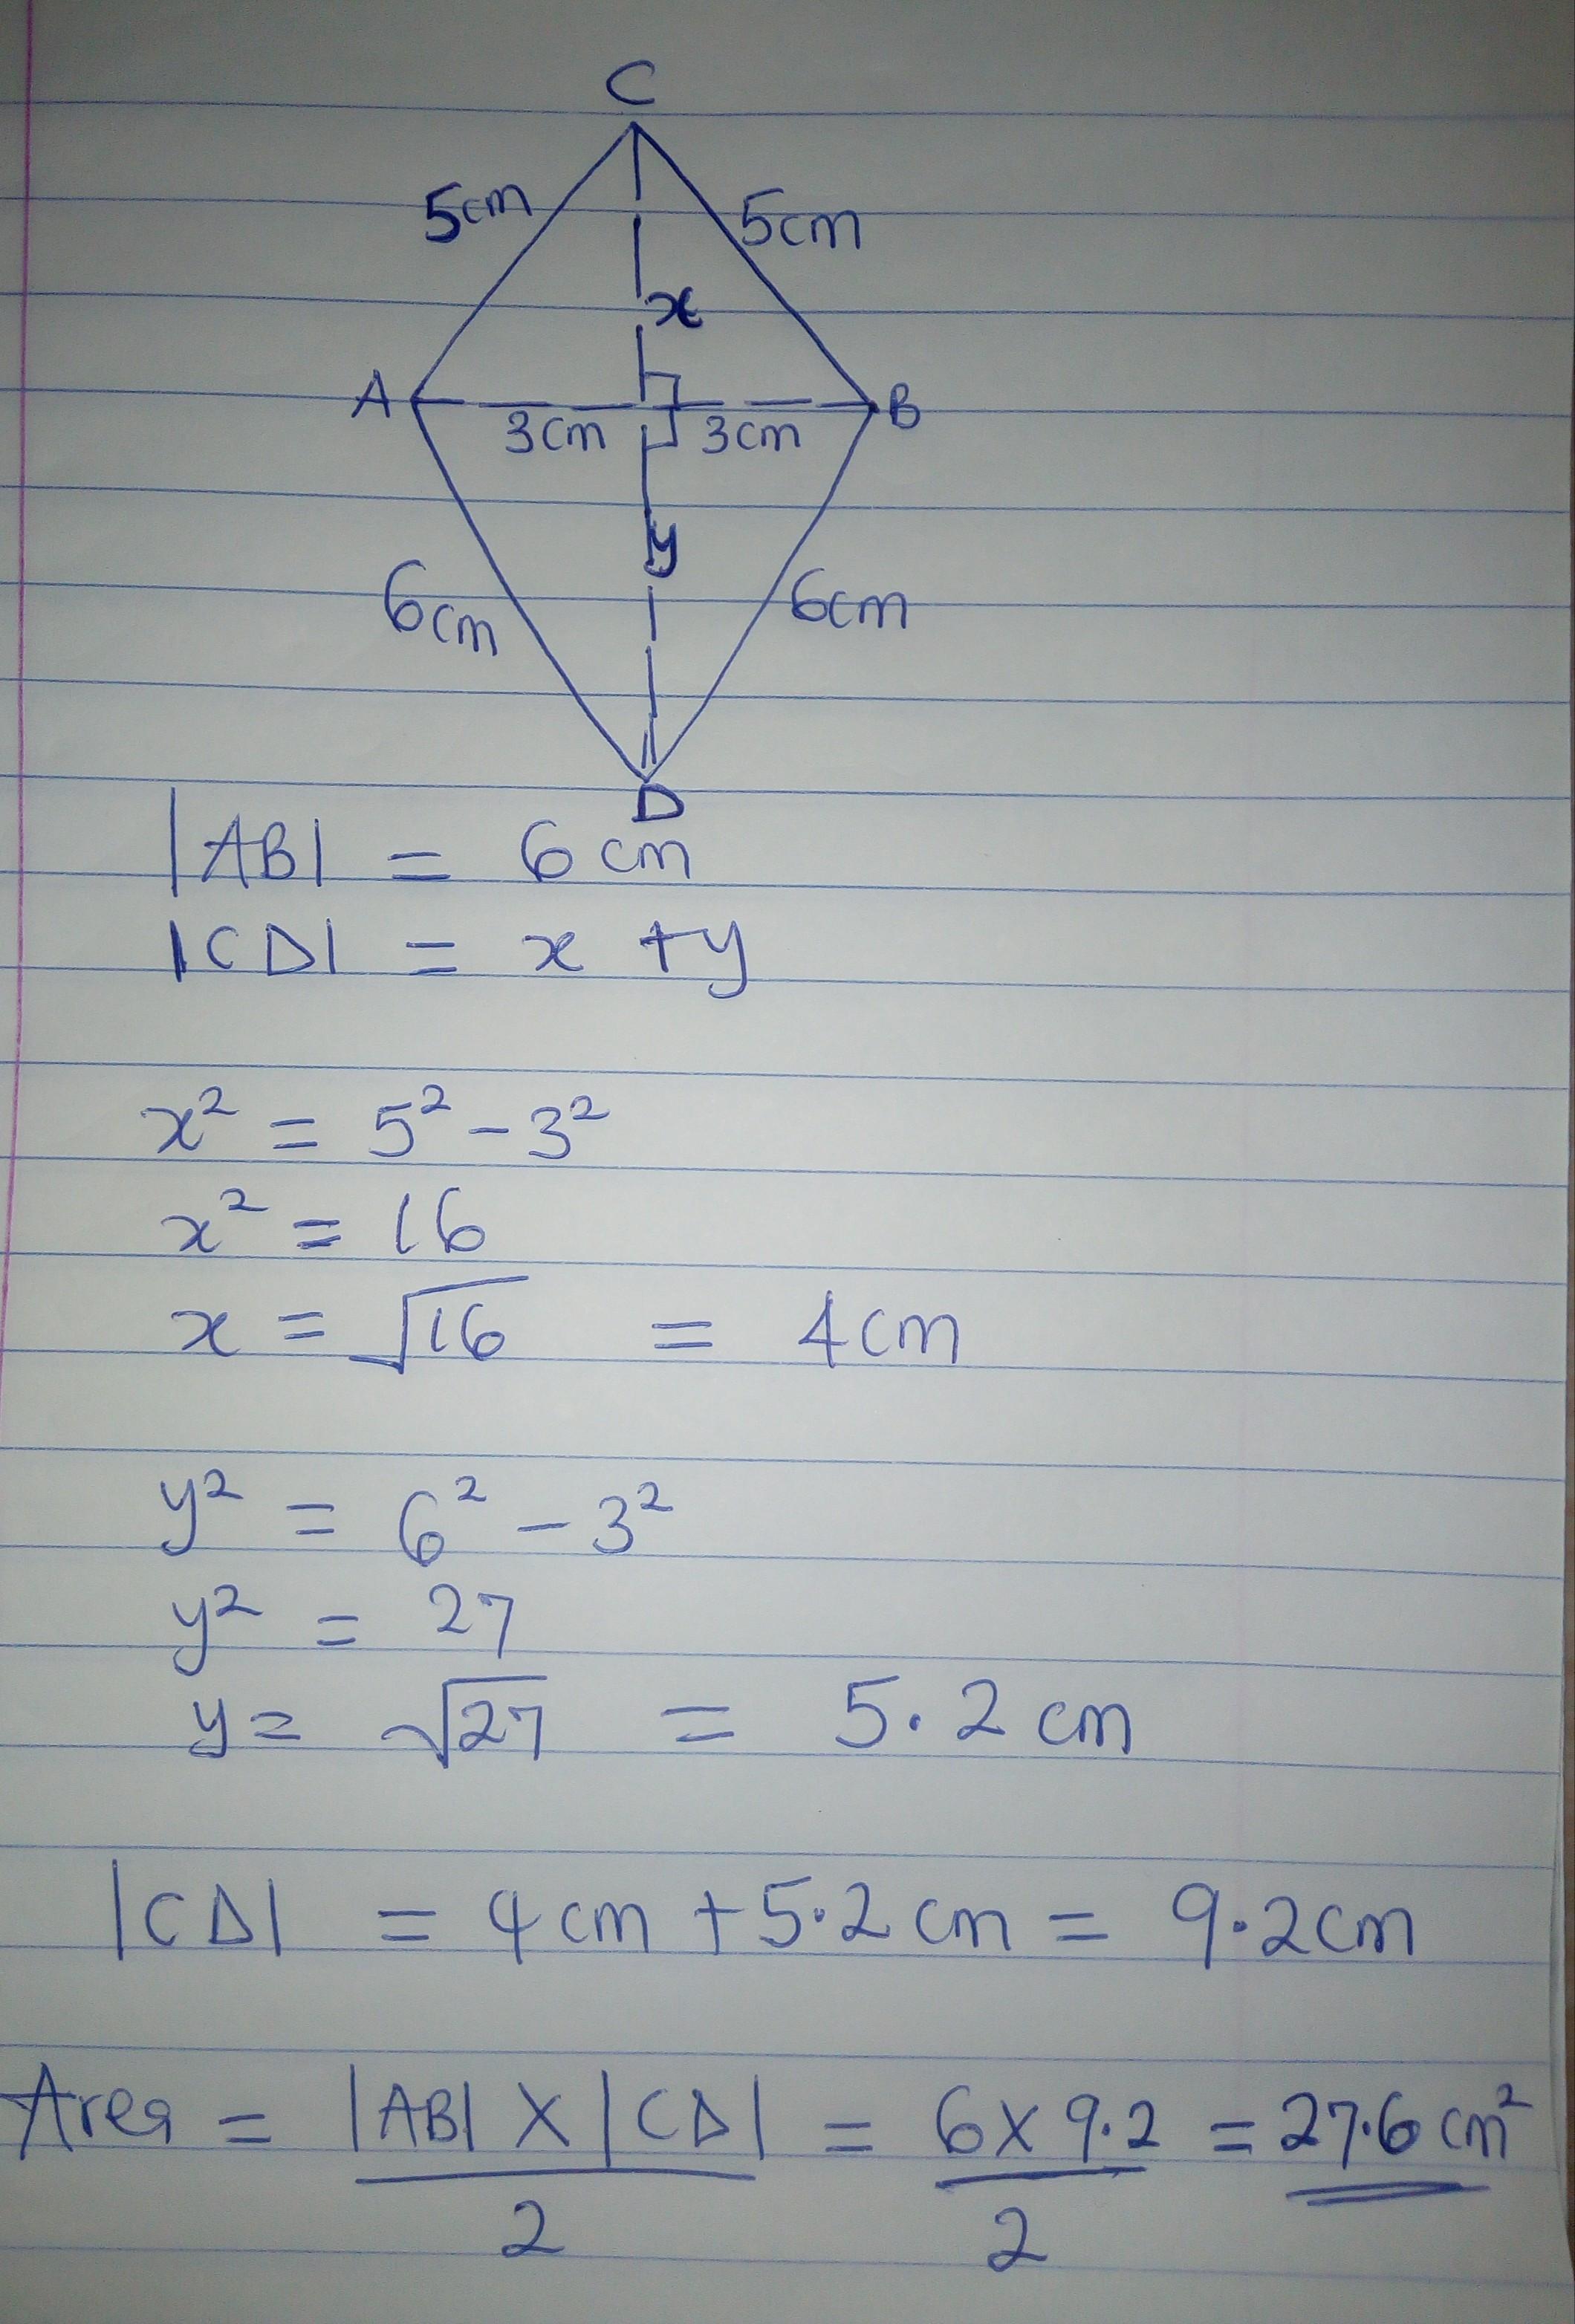 C
5cm 5cm
x
A B
3cm 3cm
y
6cm 6cm
D
|AB| = 6 cm
|CD| = x + y
x² = 5² - 3²
x² = 16
x = √16 = 4cm
y² = 6² - 3²
y² = 27
y = √27 = 5.2 cm
|CD| = 4 cm + 5.2 cm = 9.2cm
Area = |AB| X |CD| / 2 = 6 X 9.2 / 2 = 27.6 cm²